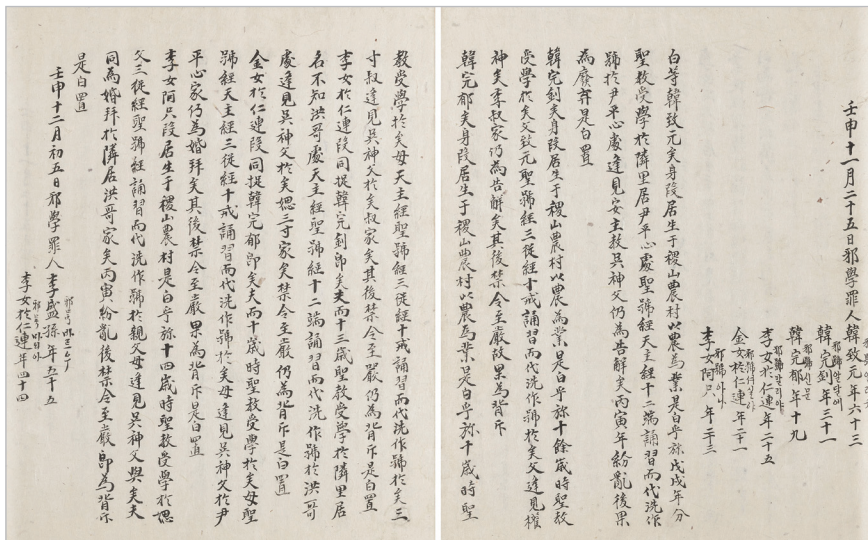 壬申十一月二十五日邪學罪人韓致元年六十三
韓完釗年三十一
韓完郁年十九
李女於仁連年二十五
金女於仁連年二十一
李女阿只年二十三
白等韓致元矣身段居生于稷山農村以農爲業是白乎旀戊戌年分
聖教受學於隣里居尹平心處聖號經天主經十二端誦習而代洗作
號於尹平心處逢見安主教吳神父仍爲告解矣丙寅年紛亂後果
爲廢弃是白置
韓完釗矣身段居生于稷山農村以農爲業是白乎旀十餘歲時聖教
受學於矣父致元聖號經三從經十戒誦習而代洗作號於矣父逢見權
神矣季叔家仍爲告解矣其後禁令至嚴故果爲背斥
韓完郁矣身段居生于稷山農村以農爲業是白乎旀十歲時聖
教受學於矣母天主經聖號經三從經十戒誦習而代洗作號於矣三
寸叔逢見吳神父於矣叔家矣其後禁令至嚴仍爲背斥是白置
李女於仁連段同捉韓完釗卽矣夫而十三歲聖教受學於隣里居
名不知洪哥處天主經聖號經十二端誦習而代洗作號於洪哥
處逢見吳神父於矣媤三寸家矣禁令至嚴仍爲背斥是白置
金女於仁連段同捉韓完郁卽矣夫而十歲時聖教受學於矣母聖
號經天主經三從經十戒誦習而代洗作號於矣母逢見吳神父於尹
平心家仍爲婚拜矣其後禁令至嚴果爲背斥是白置
李女阿只段居生于稷山農村是白乎旀十四歲時聖教受學於媤
父三從經聖號經誦習而代洗作號於親父母逢見吳神父與矣夫
同爲婚拜於隣居洪哥家矣丙寅紛亂後禁令至嚴卽爲背斥
是白置
壬申十二月初五日邪學罪人李盛孫年五十五
李女於仁連年四十四